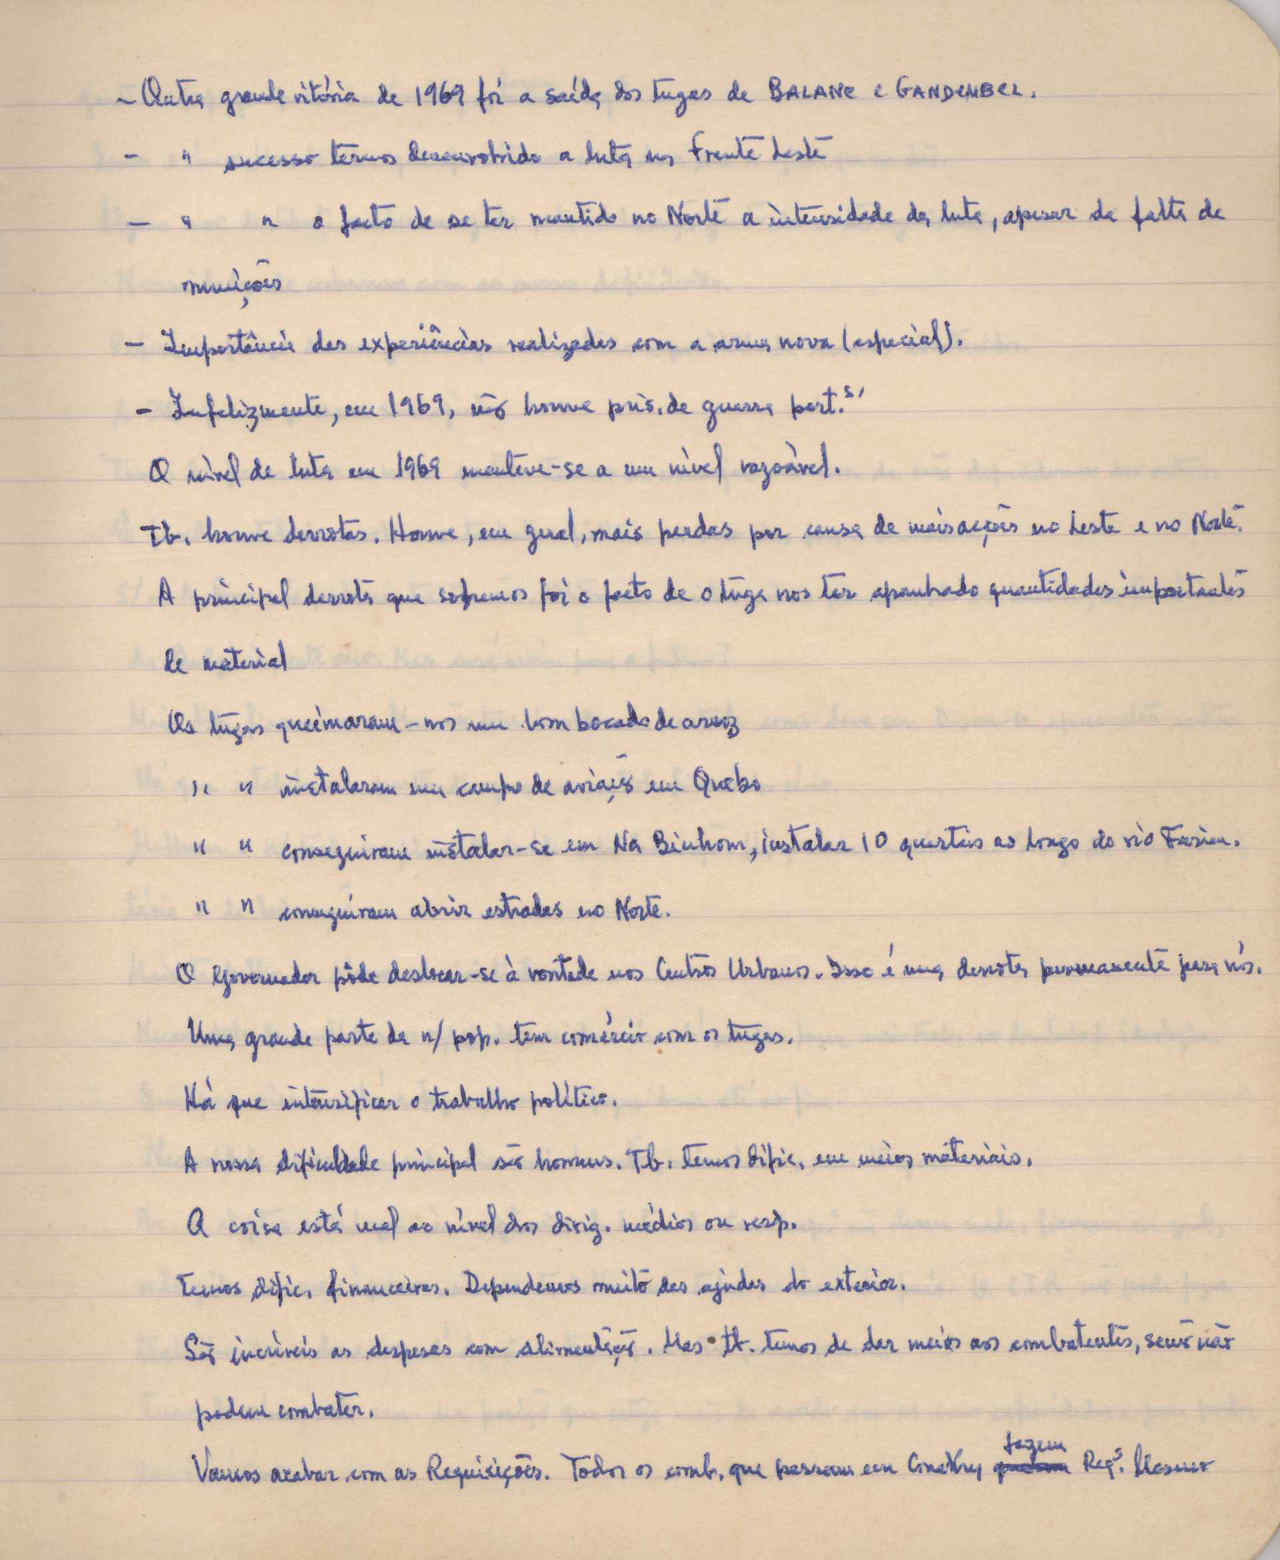 - Outra grande vitória de 1969 foi a saída dos tugas de BALANE e GANDEMBEL.
- " sucesso termos desenvolvido a luta na Frente Leste
- " " o facto de se ter mantido no Norte a intensidade da luta, apesar da falta de
munições
- Importância das experiências realizadas com a arma nova (especial).
- Infelizmente, em 1969, não houve pris. de guerra port.s,
O nível de luta em 1969 manteve-se a um nível razoável.
Tb. houve derrotas. Houve, em geral, mais perdas por causa de mais acções no Leste e no Norte.
A principal derrota que sofremos foi o facto de o tuga nos ter apanhado quantidades importantes
de material
Os tugas queimaram-nos um bom bocado de arroz
" " instalaram um campo de aviação em Quebo
" " conseguiram instalar-se em Na Binhom, instalar 10 quartéis ao longo do rio Farim.
" " conseguiram abrir estradas no Norte.
O governador pôde deslocar-se à vontade nos Centros Urbanos. Isso é uma derrota permanente para nós.
Uma grande parte da n/ pop. tem comércio com os tugas.
Há que intensificar o trabalho político.
A nossa dificuldade principal são homens. Tb. temos dific. em meios materiais.
A coisa está mal ao nível dos dirig. médios ou resp.
Temos dific. financeiras. Dependemos muito das ajudas do exterior.
São incríveis as despesas com alimentação. Mas tb. temos de dar meios aos combatentes, senão não
podem combater.
Vamos acabar com as Requisições. Todos os comb. que passam em Conakry fazem Reqs. Mesmo